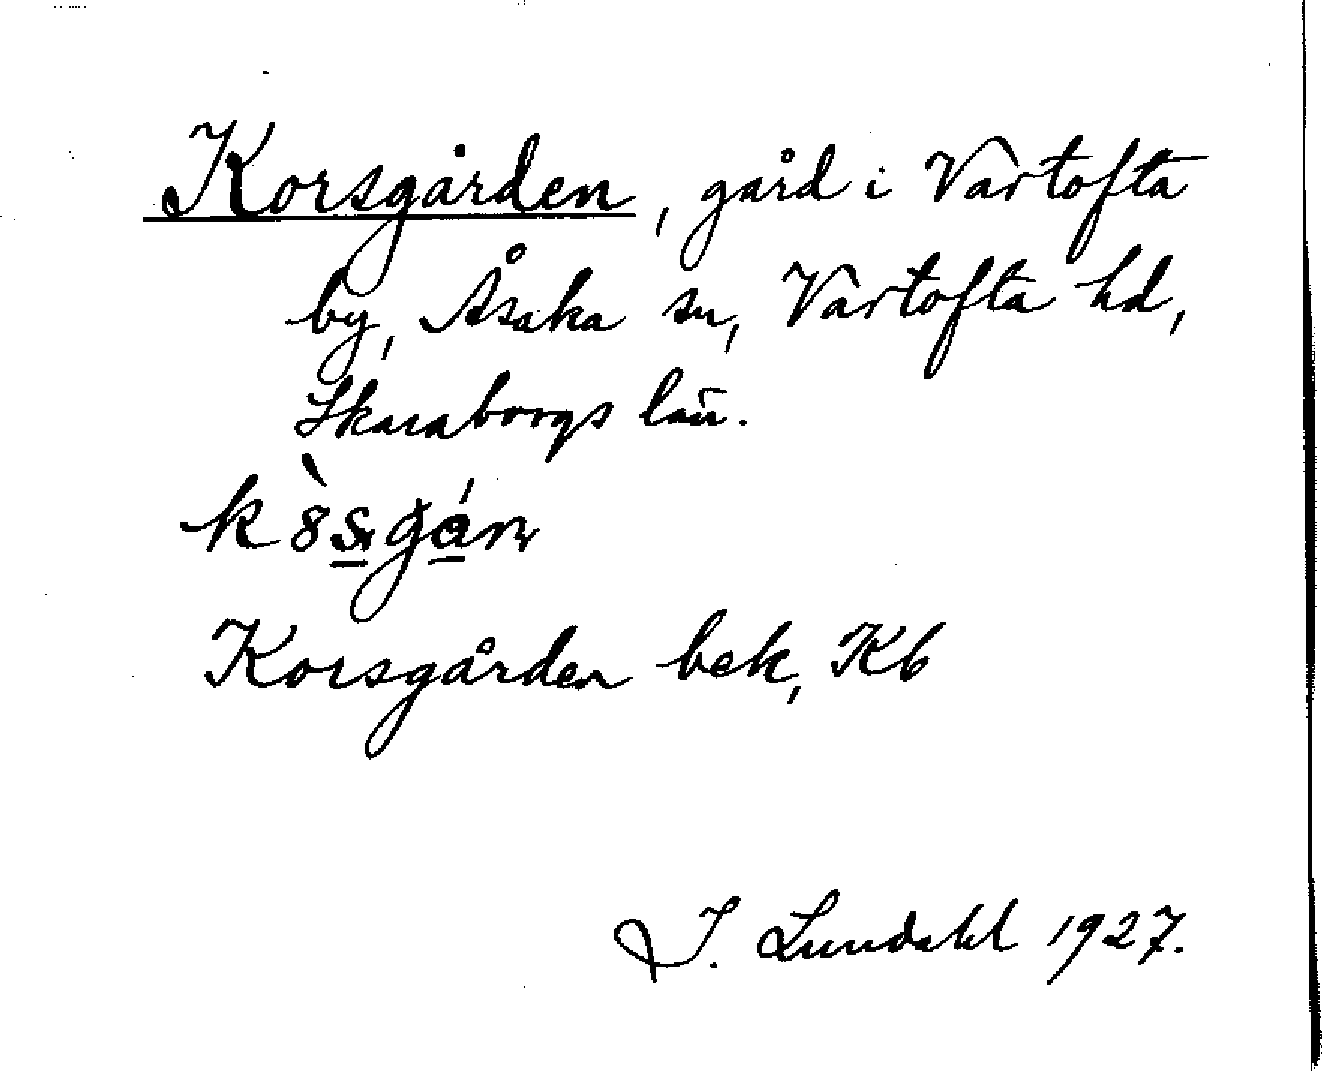 Korsgården, gård i Vartofta
by, Åsaka sn, Vartofta hd,
Skaraborgs län.
Korsgården bek, Kb
I. Lundahl 1927.